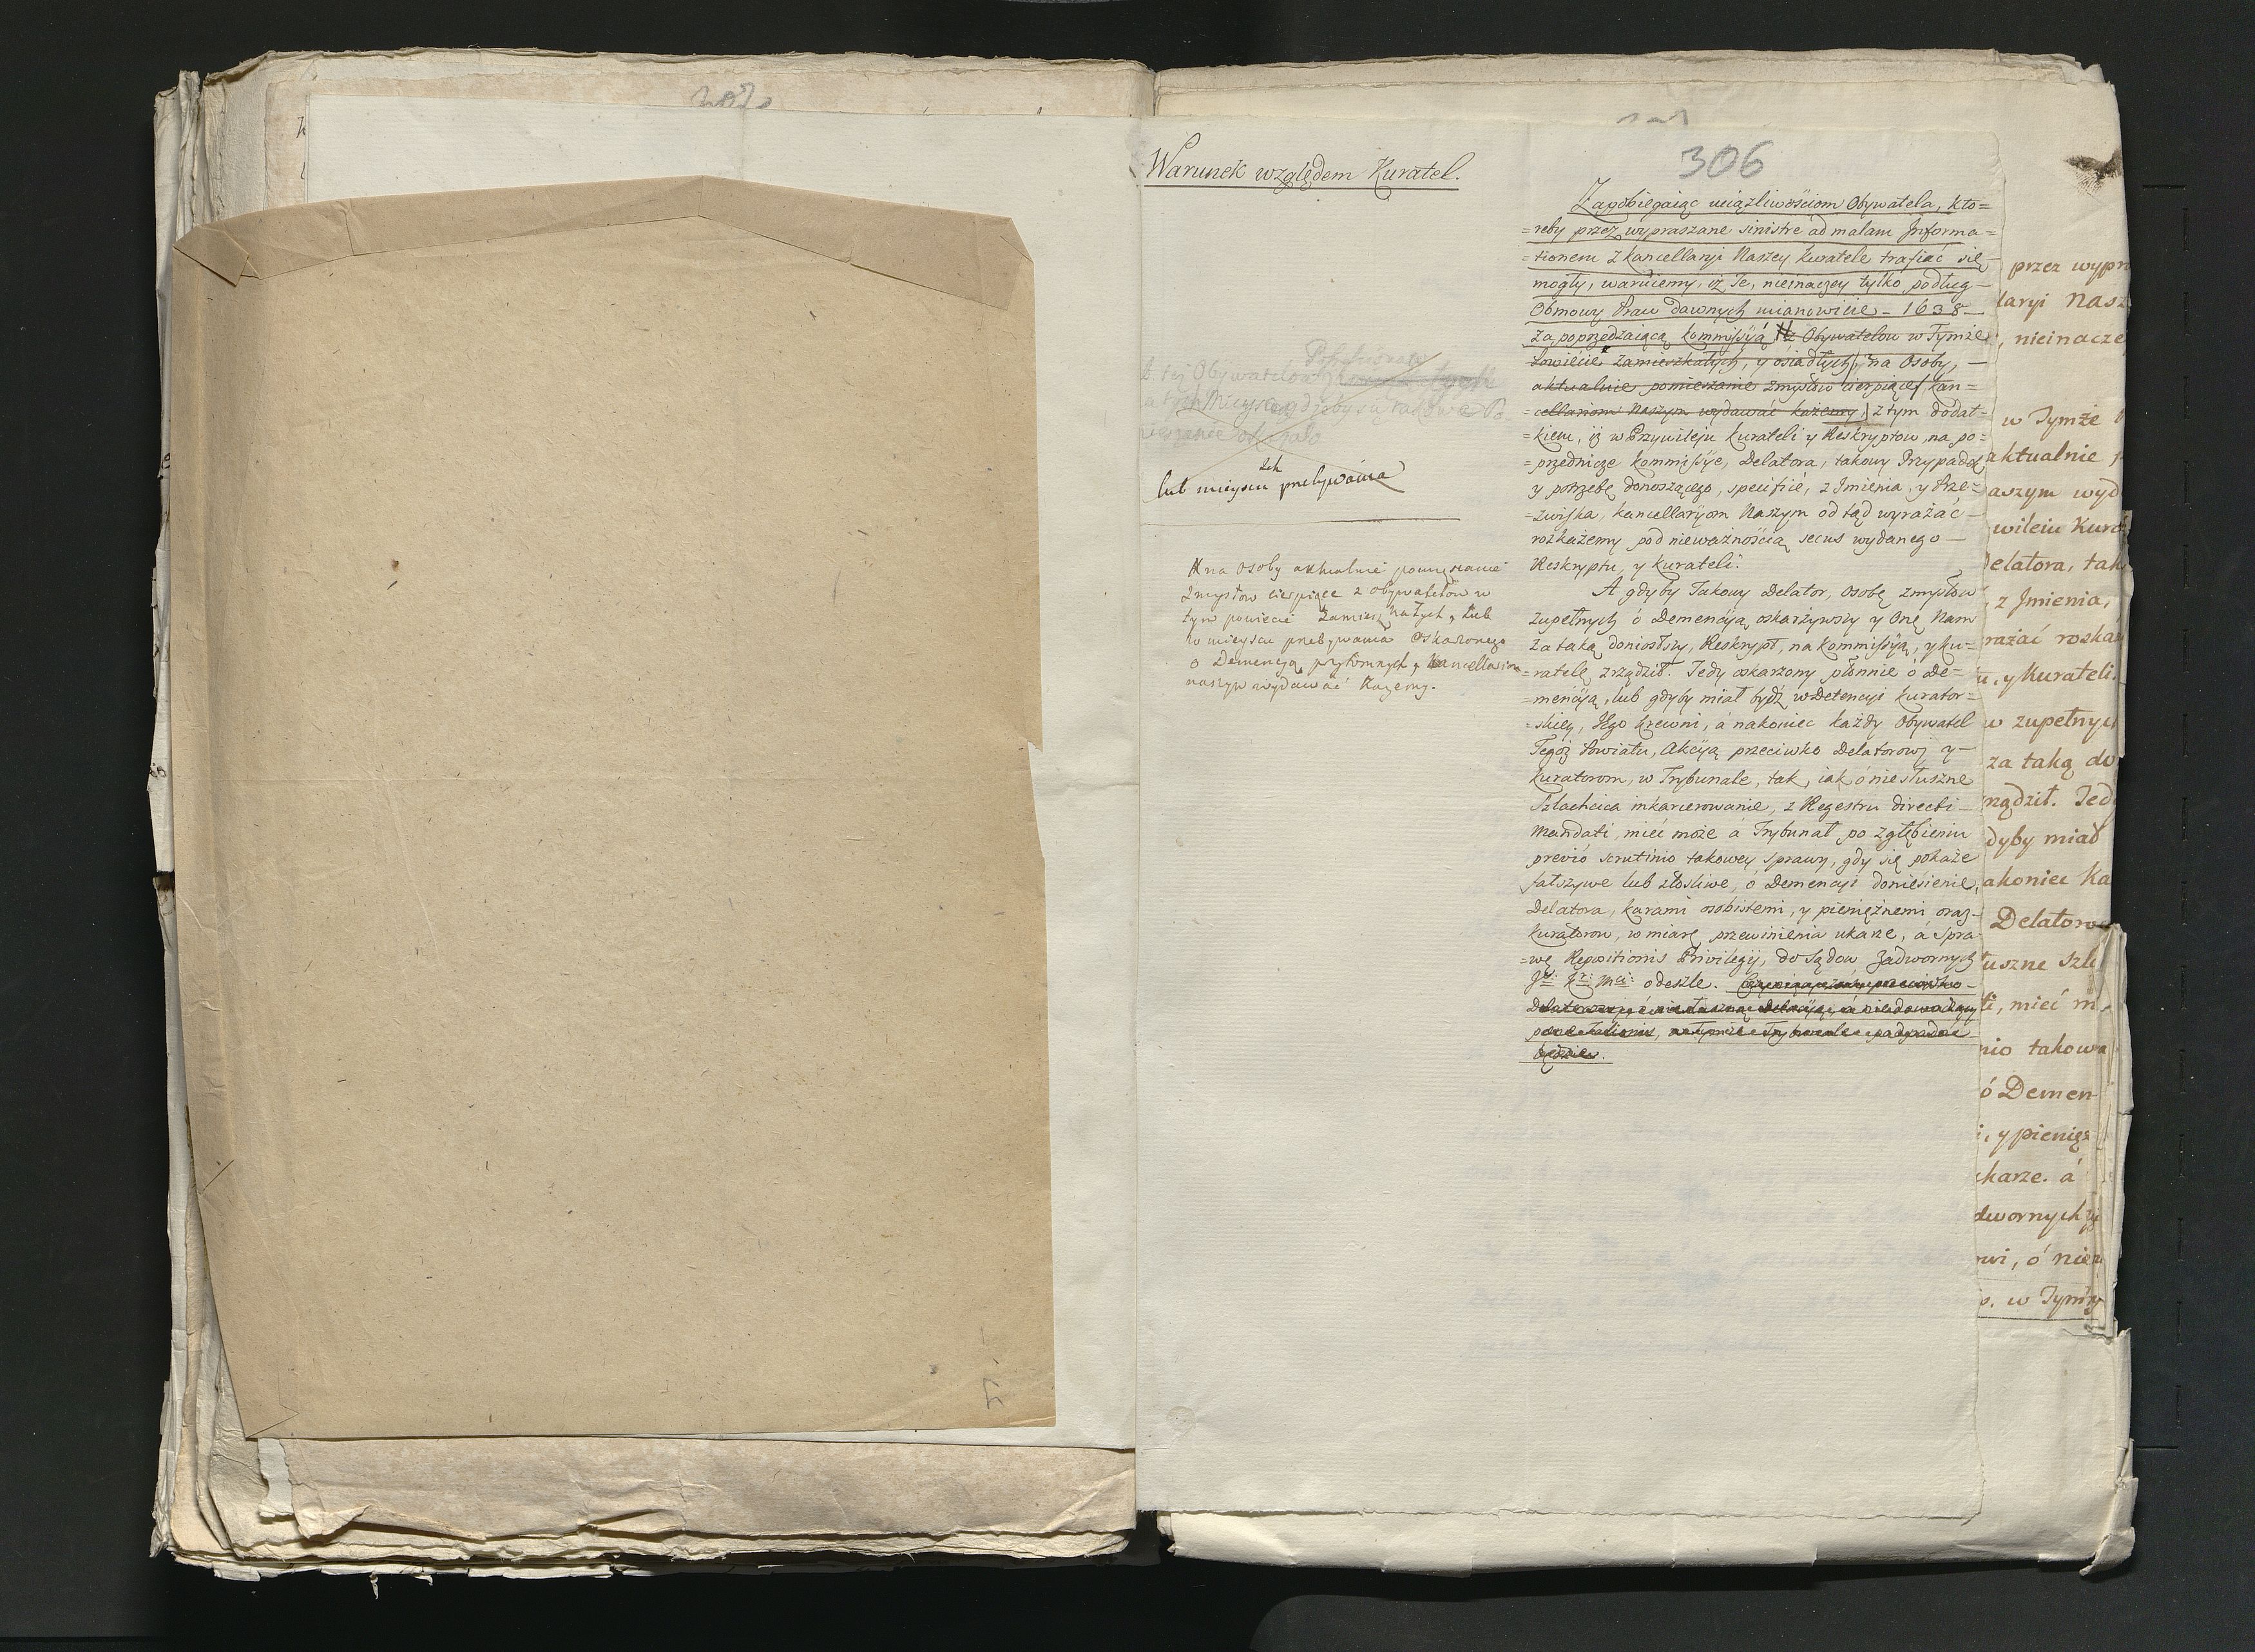 Warunek względem Kuratel.
306
Zapobiegaiąc uciążliwościom Obywatela, kto=
=reby przez wypraszane sinistre ad malam Jnforma=
=tionem z Kancellaryi Naszey Kuratele trafiać się
mogły, waruiemy, iż Te, nieinaczey tylko podług
Obmowy Praw dawnych mianowicie - 1638 -
za poprzedzaiącą Kommissyą # z Obywatelow w Tymże
Powiecie zamieszkałych, y osiadłych, na Osoby, -
aktualnie pomieszanie zmysłow cierpiące, Kan=
=cellariom Naszym wydawać każemy, z tym dodat=
=kiem, iż w Przywileju Kurateli y Reskryptow, na po=
=przednicze Kommissye, Delatora, takowy Przypadek
y potrzebę donoszącego, specifice, z Jmienia, y Prze=
=zwiska, Kancellaryom Naszym odtąd wyrażać -
rozkażemy pod nieważnością secus wydanego -
Reskryptu, y Kurateli.
A gdyby Takowy Delator, osobę zmysłow
zupełnych ó Demencyą oskarżywszy y Onę Nam
za taką doniosłszy, Reskrypt, na Kommissyą, y Ku=
=ratelę zrządził. Tedy oskarżony płonnie ó De=
=mencyą, lub gdyby miał bydź w Detencyi Kurator=
=skiey, Jego Krewni, á nakoniec każdy Obywatel
Tegoż Powiatu, Akcyą przeciwko Delatorowi y -
Kuratorom, w Trybunale, tak, iak ó niesłuszne
Szlachcica inkarcerowanie, z Regestru directi -
Mandati, mieć może á Trybunał po zgłębieniu
previo scrutinio takowey sprawy, gdy się pokaże
fałszywe lub złosliwe, ó Demencyi doniesienie,
Delatora, karami osobistemi, y pieniężnemi oraz
Kuratorow, w miarę przewinienia ukarze, á Spra
=wę Repositionis Privilegij, do Sądow Zadwornych
Jeo Kr: Mci: odeszle.
lub mieyscu ich przebywania
# na osoby aktualnie pomieszanie
Zmysłow cierpiące z obywatelow w
tym powiecie Zamieszkałych, Lub
w mieyscu przebywania Oskarżonego
o Demencyą przytomnych, Kancellariom
naszym wydawać Każemy.
przez wypr
laryi Nasz
, nieinacze
w Tymże
aktualnie
aszym wyd
wileiu Kura
Delatora, tak
, z Jmienia,
rażać roska
u, y Kurateli.
w zupełnych
za taką do
rządził. Ted
dyby miał
akoniec Ka
Delatorow
łuszne Szl
ti, mieć m
nio takowe
ó Demen
i, y pienięż
karze. á
dwornych
owi, ó nie
s. w Tymże